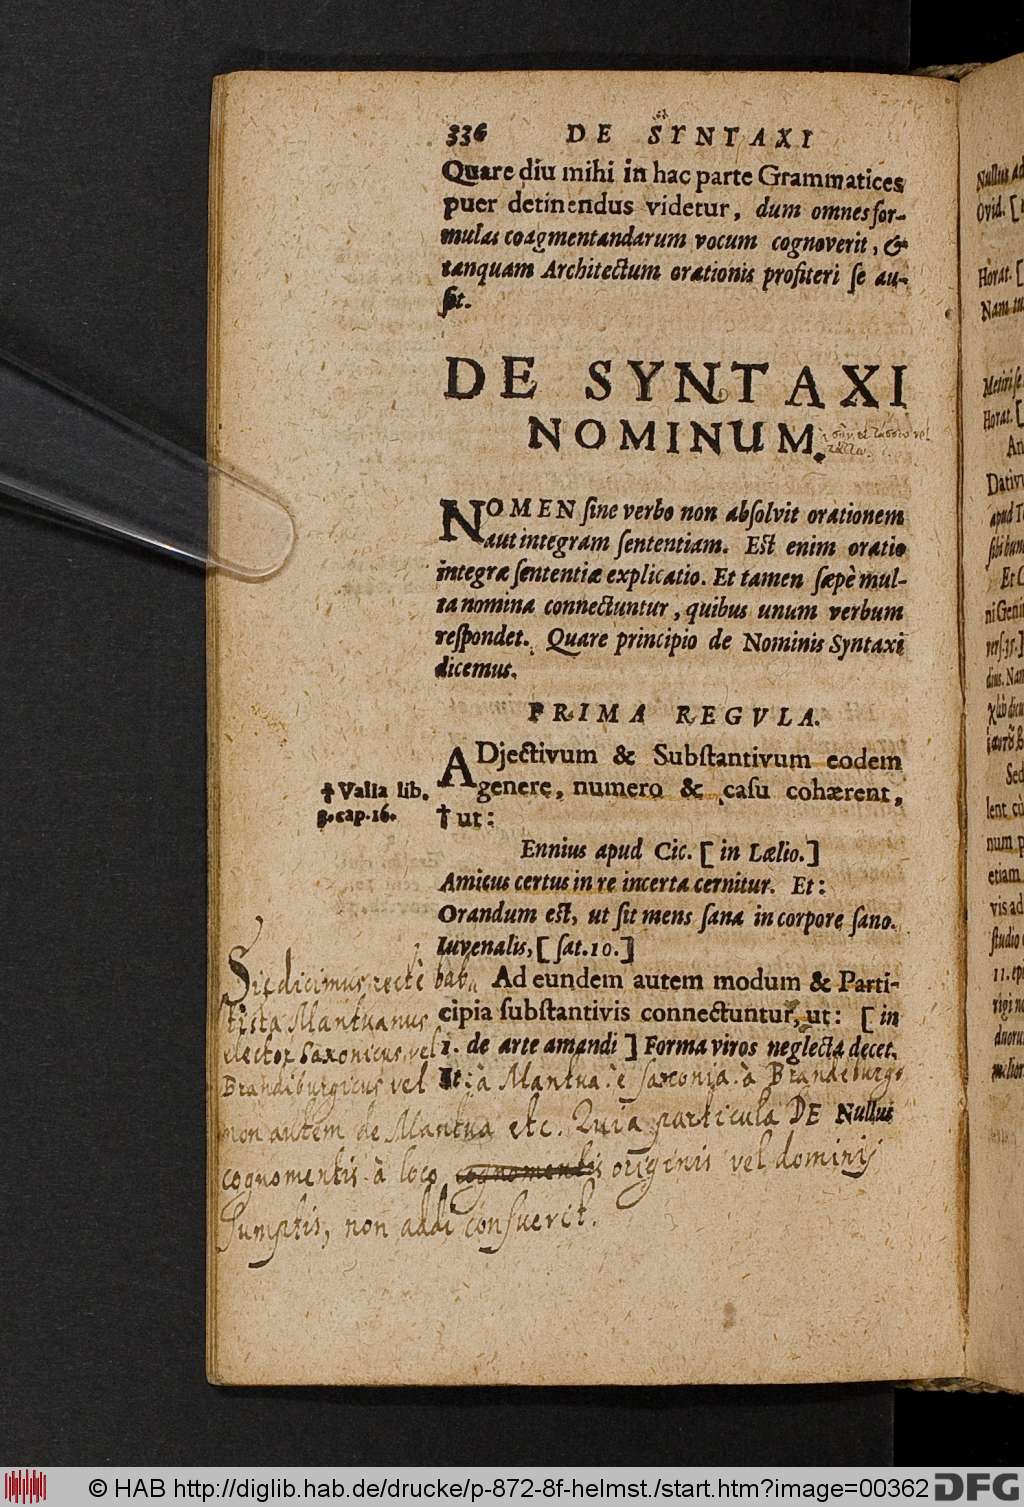 336 DE SYNTAXI
Quare diu mihi in hac parte Grammatices
puer detinendus videtur, dum omnes for-
mulas coagmentandarum vocum cognoverit, &
tanquam Architectum orationis profiteri ſe au-
ſit.
DE SYNTAXI
NOMINUM.
NOMEN ſine verbo non abſolvit orationem
aut integram ſententiam. Eſt enim oratio
integræ ſententiæ explicatio. Et tamen ſæpè mul-
ta nomina connectuntur, quibus unum verbum
reſpondet. Quare principio de Nominis Syntaxi
dicemus.
PRIMA REGVLA.
ADjectivum & Subſtantivum eodem
genere, numero & caſu cohærent,
† ut:
† Valla lib.
3. cap. 16.
Ennius apud Cic. [ in Lælio. ]
Amicus certus in re incerta cernitur. Et:
Orandum eſt, ut ſit mens ſana in corpore ſano.
Iuvenalis, [ ſat. 10. ]
Ad eundem autem modum & Parti-
cipia ſubſtantivis connectuntur, ut: [ in
1. de arte amandi ] Forma viros neglecta decet.
It:
Nullus
Sic dicimus rectè bap
tista Mantuanus
elector Saxonicus, vel
Brandiburgicus vel à Mantua. è saxonia. à Brandeburgo
non autem de Mantua etc. Quia particula DE
cognomentis à loco originis vel dominij
sumptis, non addi consuevit.
Nullus
Ovid. [
Horat. [
Horat. [
Dativ
apud
Et
Sed
etiam
vis ad
ſtudio
© HAB http://diglib.hab.de/drucke/p-872-8f-helmst./start.htm?image=00362 DFG